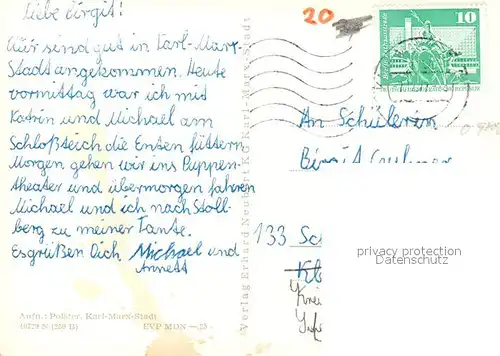 Liebe Birgit!
Wir sind gut in Karl-Marx-
Stadt angekommen. Heute
vormittag war ich mit
Katrin und Michael am
Schloßteich die Enten füttern
Morgen gehen wir ins Puppen-
theater und übermorgen fahren
Michael und ich nach Stoll-
berg zu meiner Tante.
Es grüßen Dich Michael und
Annett
Aufn.: Polster, Karl-Marx-Stadt
EVP MDN
Verlag Erhard Neubert KG Karl-Marx-Stadt
20
10
An Schülerin
Birgit
133 Sc
privacy protection
Datenschutz